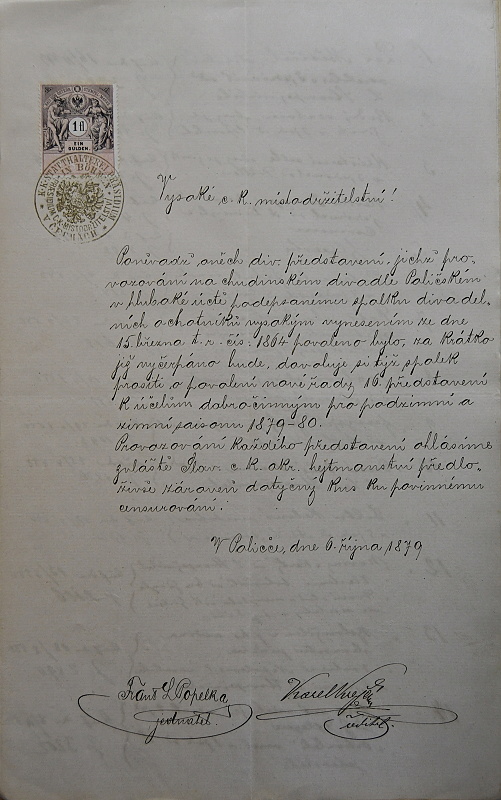 1 fl
EIN
GULDEN.
K.K. STATTHALTEREI
IN BÖHMEN
V ČECHÁCH
Vysoké c. k. místodržitelství!
Poněvadž oněch div. představení, jichž pro-
vozování na chudinském divadle Poličském
v hluboké úctě podepsanému spolku divadel-
ních ochotníků vysokým vynesením ze dne
15. března t. r. čís: 1864 povoleno bylo, za krátko
již vyčerpáno bude, dovoluje si týž spolek
prositi o povolení nové řady 16. představení
k účelům dobročinným pro podzimní a
zimní saisonu 1879-80.
Provozování každého představení ohlásíme
zvláště Slav. c. k. okr. hejtmanství předlo-
živše zároveň dotyčný kus ku povinnému
censurování.
V Poličce, dne 6. října 1879
Frant. L. Popelka
jednatel.
Karel
ředitel.